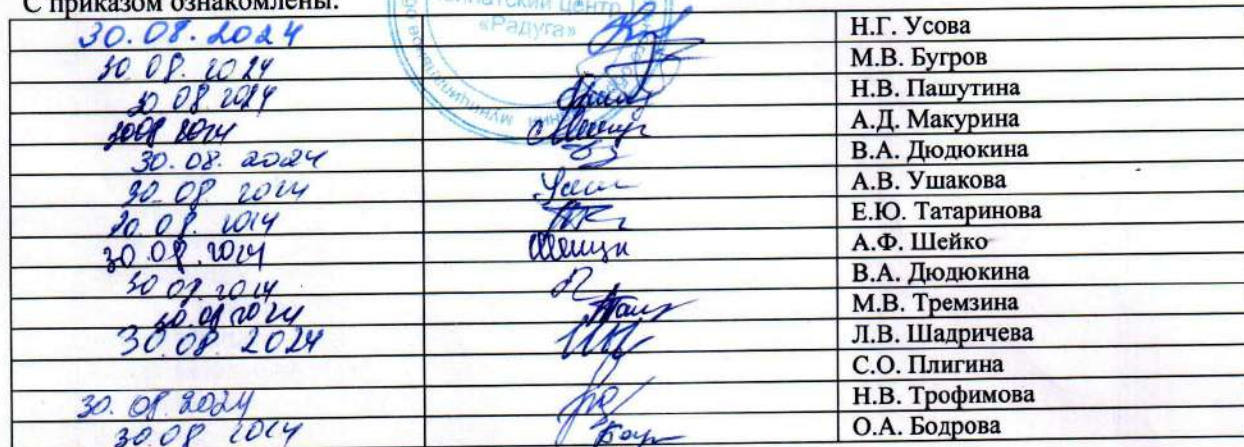 С приказом ознакомлены:
центр
«Радуга»
30.08.2024 Н.Г. Усова
30.08.2024 М.В. Бугров
30.08.2024 Н.В. Пашутина
30.08.2024 А.Д. Макурина
30.08.2024 В.А. Дюдюкина
30.08.2024 А.В. Ушакова
30.08.2024 Е.Ю. Татаринова
30.08.2024 А.Ф. Шейко
30.08.2024 В.А. Дюдюкина
30.08.2024 М.В. Тремзина
30.08.2024 Л.В. Шадричева
С.О. Плигина
30.08.2024 Н.В. Трофимова
30.08.2024 О.А. Бодрова